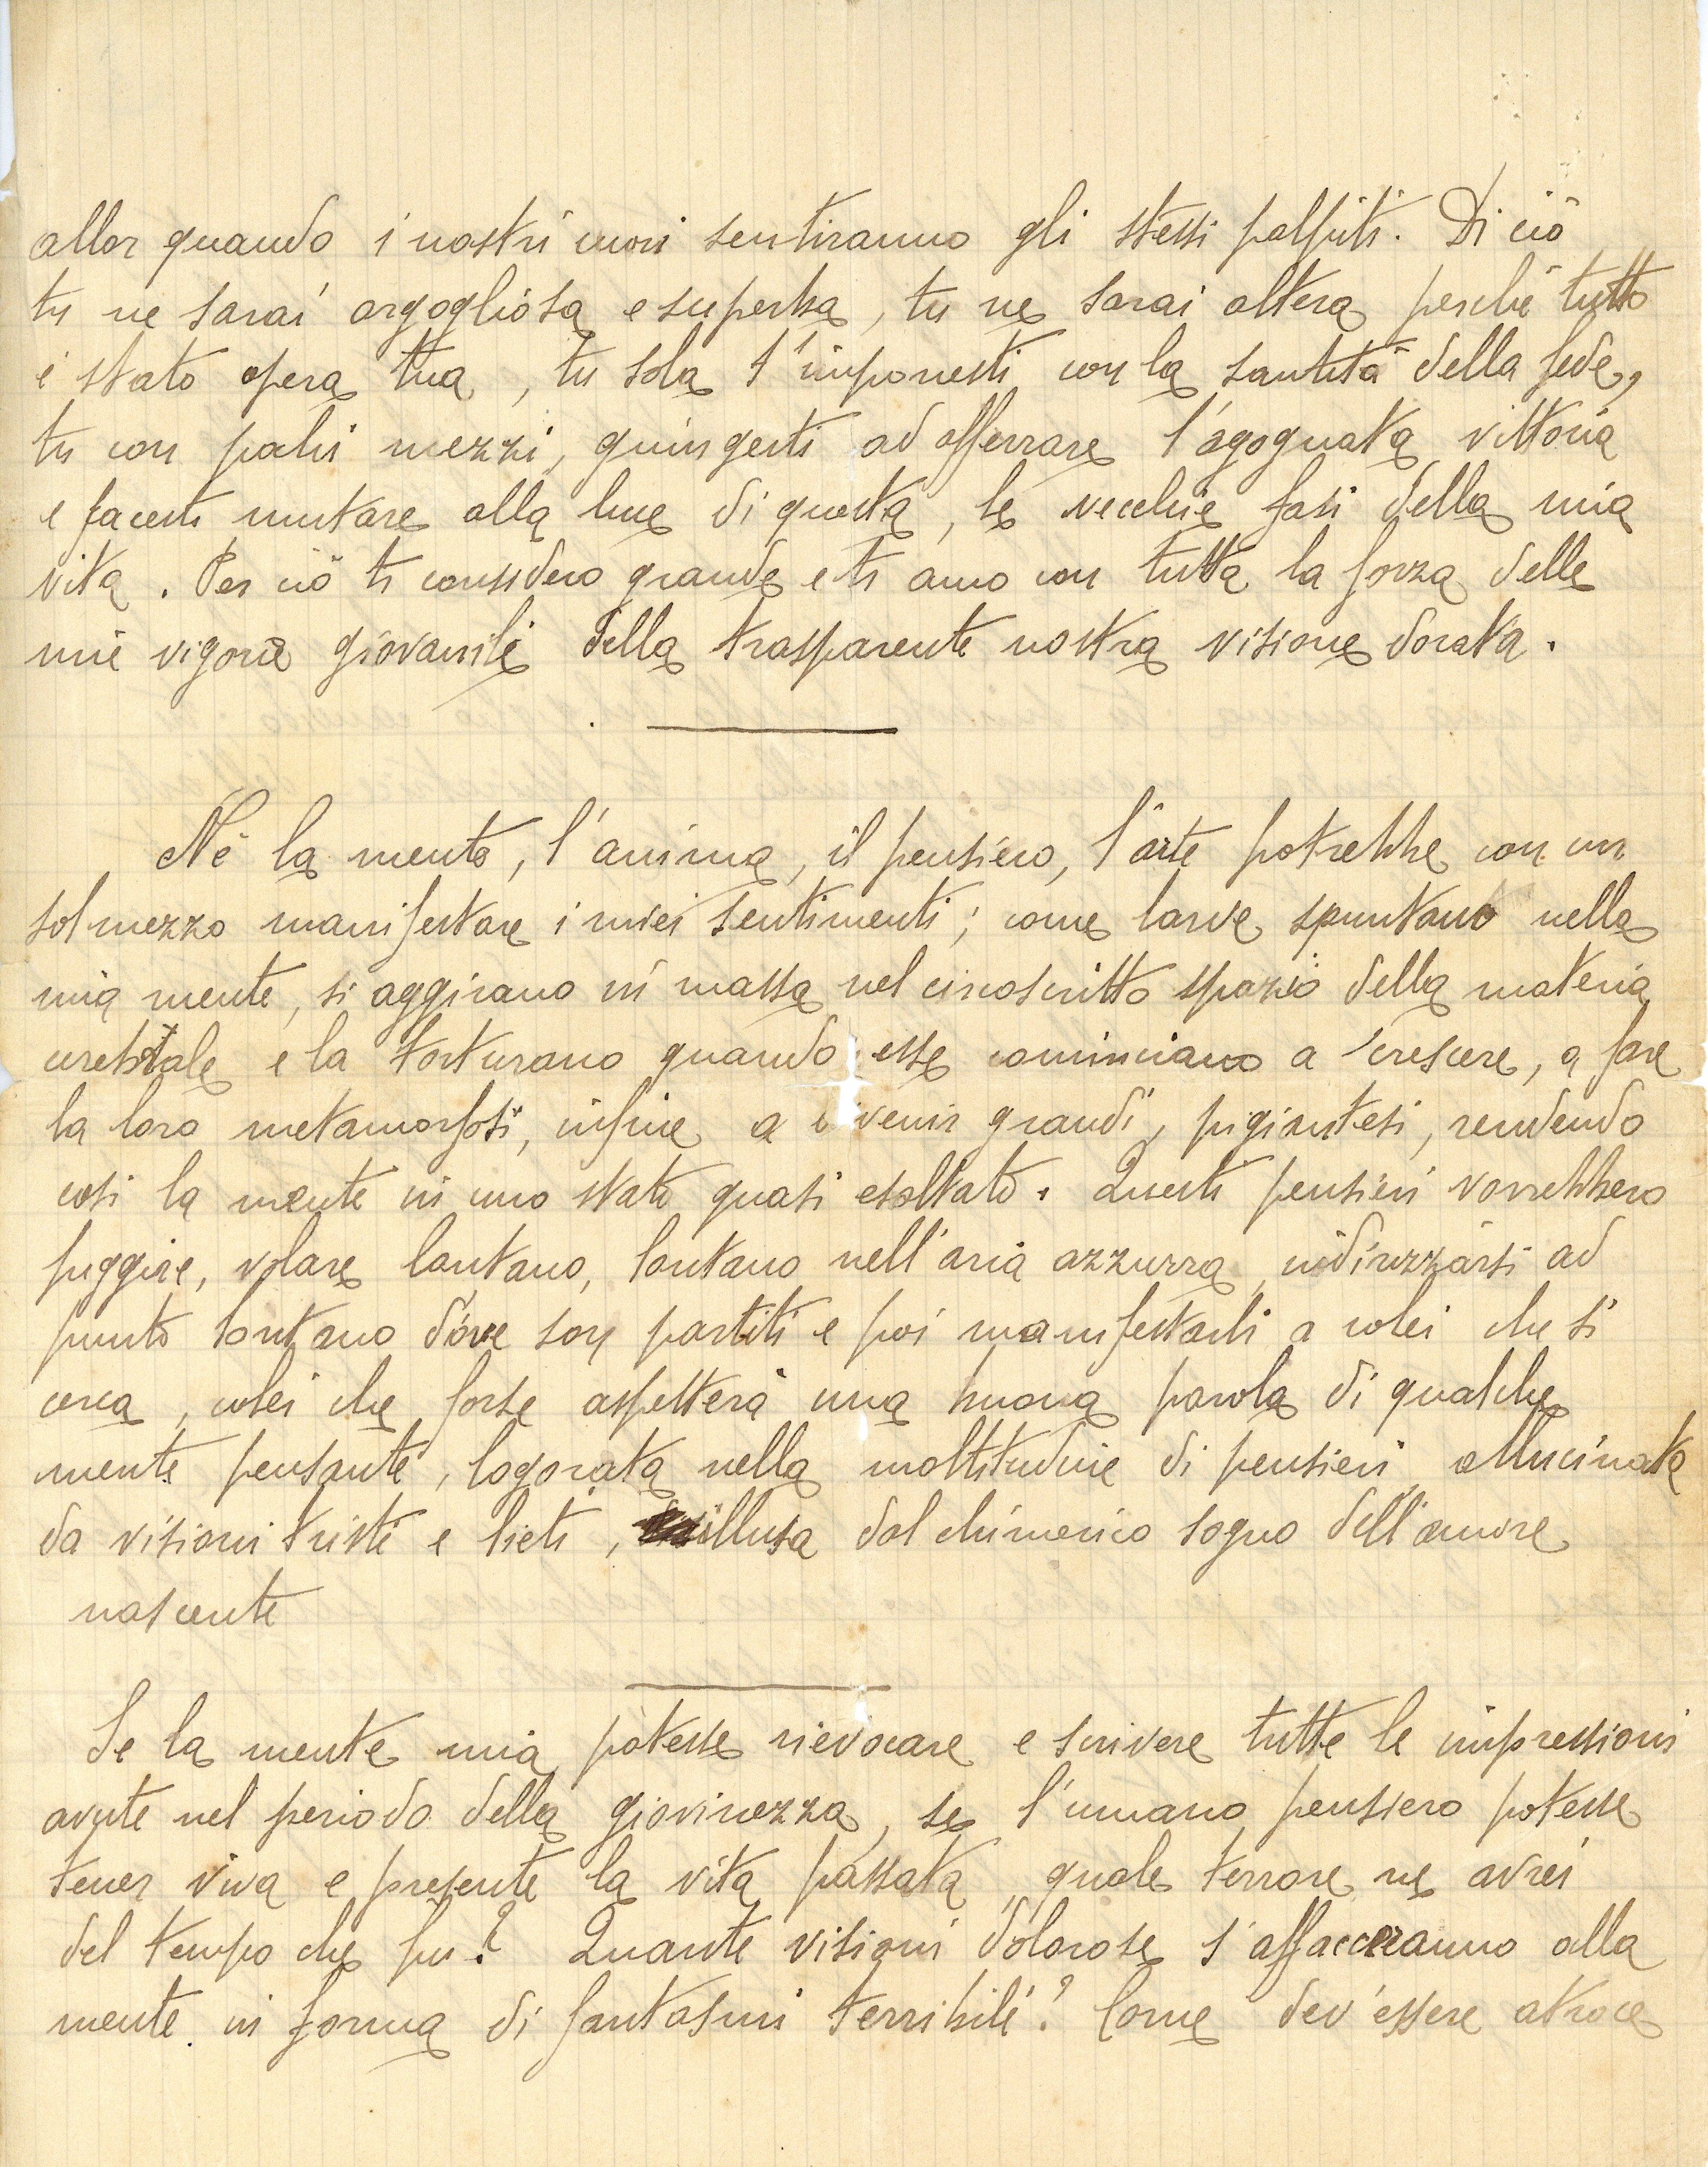 allor quando i nostri cuori sentiranno gli stessi palpiti. Di ciò
tu ne sarai orgogliosa e superba, tu ne sarai altera perchè tutto
è stato opera tua, tu sola t'imponesti con la santità della fede,
tu con pochi mezzi, giungesti ad afferrare l'agognata vittoria
e facesti mutare alla luce di questa, le vecchie fasi della mia
vita. Per ciò ti considero grande e ti amo con tutta la forza delle
mie vigorie giovanili della trasparente nostra visione dorata.
Nè la mente, l'anima, il pensiero, l'arte potrebbe con un
sol mezzo manifestare i miei sentimenti; come larve spuntano nella
mia mente, si aggirano in massa nel circoscritto spazio della materia
cerebrale e la torturano quando esse cominciano a crescere, a fare
la loro metamorfosi, infine a divenir grandi, gigantesi, rendendo
così la mente in uno stato quasi esaltato. Questi pensieri vorrebbero
fuggire, volare lontano, lontano nell'aria azzurra, indirizzarsi ad
punto lontano d'ove son partiti e poi manifestarli a colei che si
cerca, colei che forse aspetterà una buona parola di qualche
mente pensante, logorata nella moltitudine di pensieri, allucinata
da visioni tristi e lieti, illusa dal chimerico sogno dell'amore
nascente
Se la mente mia potesse rievocare e scrivere tutte le impressioni
avute nel periodo della giovinezza, se l'umano pensiero potesse
tener viva e presente la vita passata, quale terrore ne avrei
del tempo che fu? Quante visioni dolorose s'affacceranno alla
mente in forma di fantasmi terribili? Come dev'essere atroce